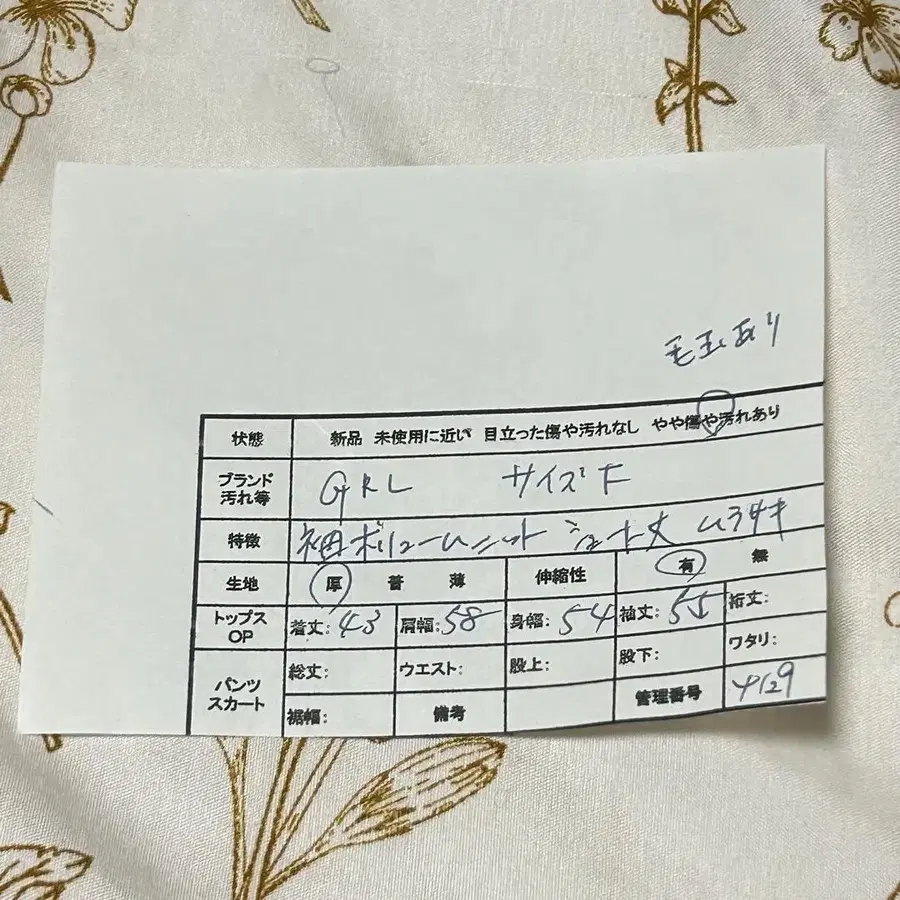 毛玉あり
状態 新品 未使用に近い 目立った傷や汚れなし やや傷や汚れあり
ブランド 汚れ等 GRL サイズF
特徴 袖ボリュームニット ショート丈 ムラサキ
生地 厚 普 薄 伸縮性 有 無
トップス OP 着丈:43 肩幅:58 身幅:54 袖丈:55 裄丈:
パンツ スカート 総丈: ウエスト: 股上: 股下: ワタリ:
裾幅: 備考 管理番号